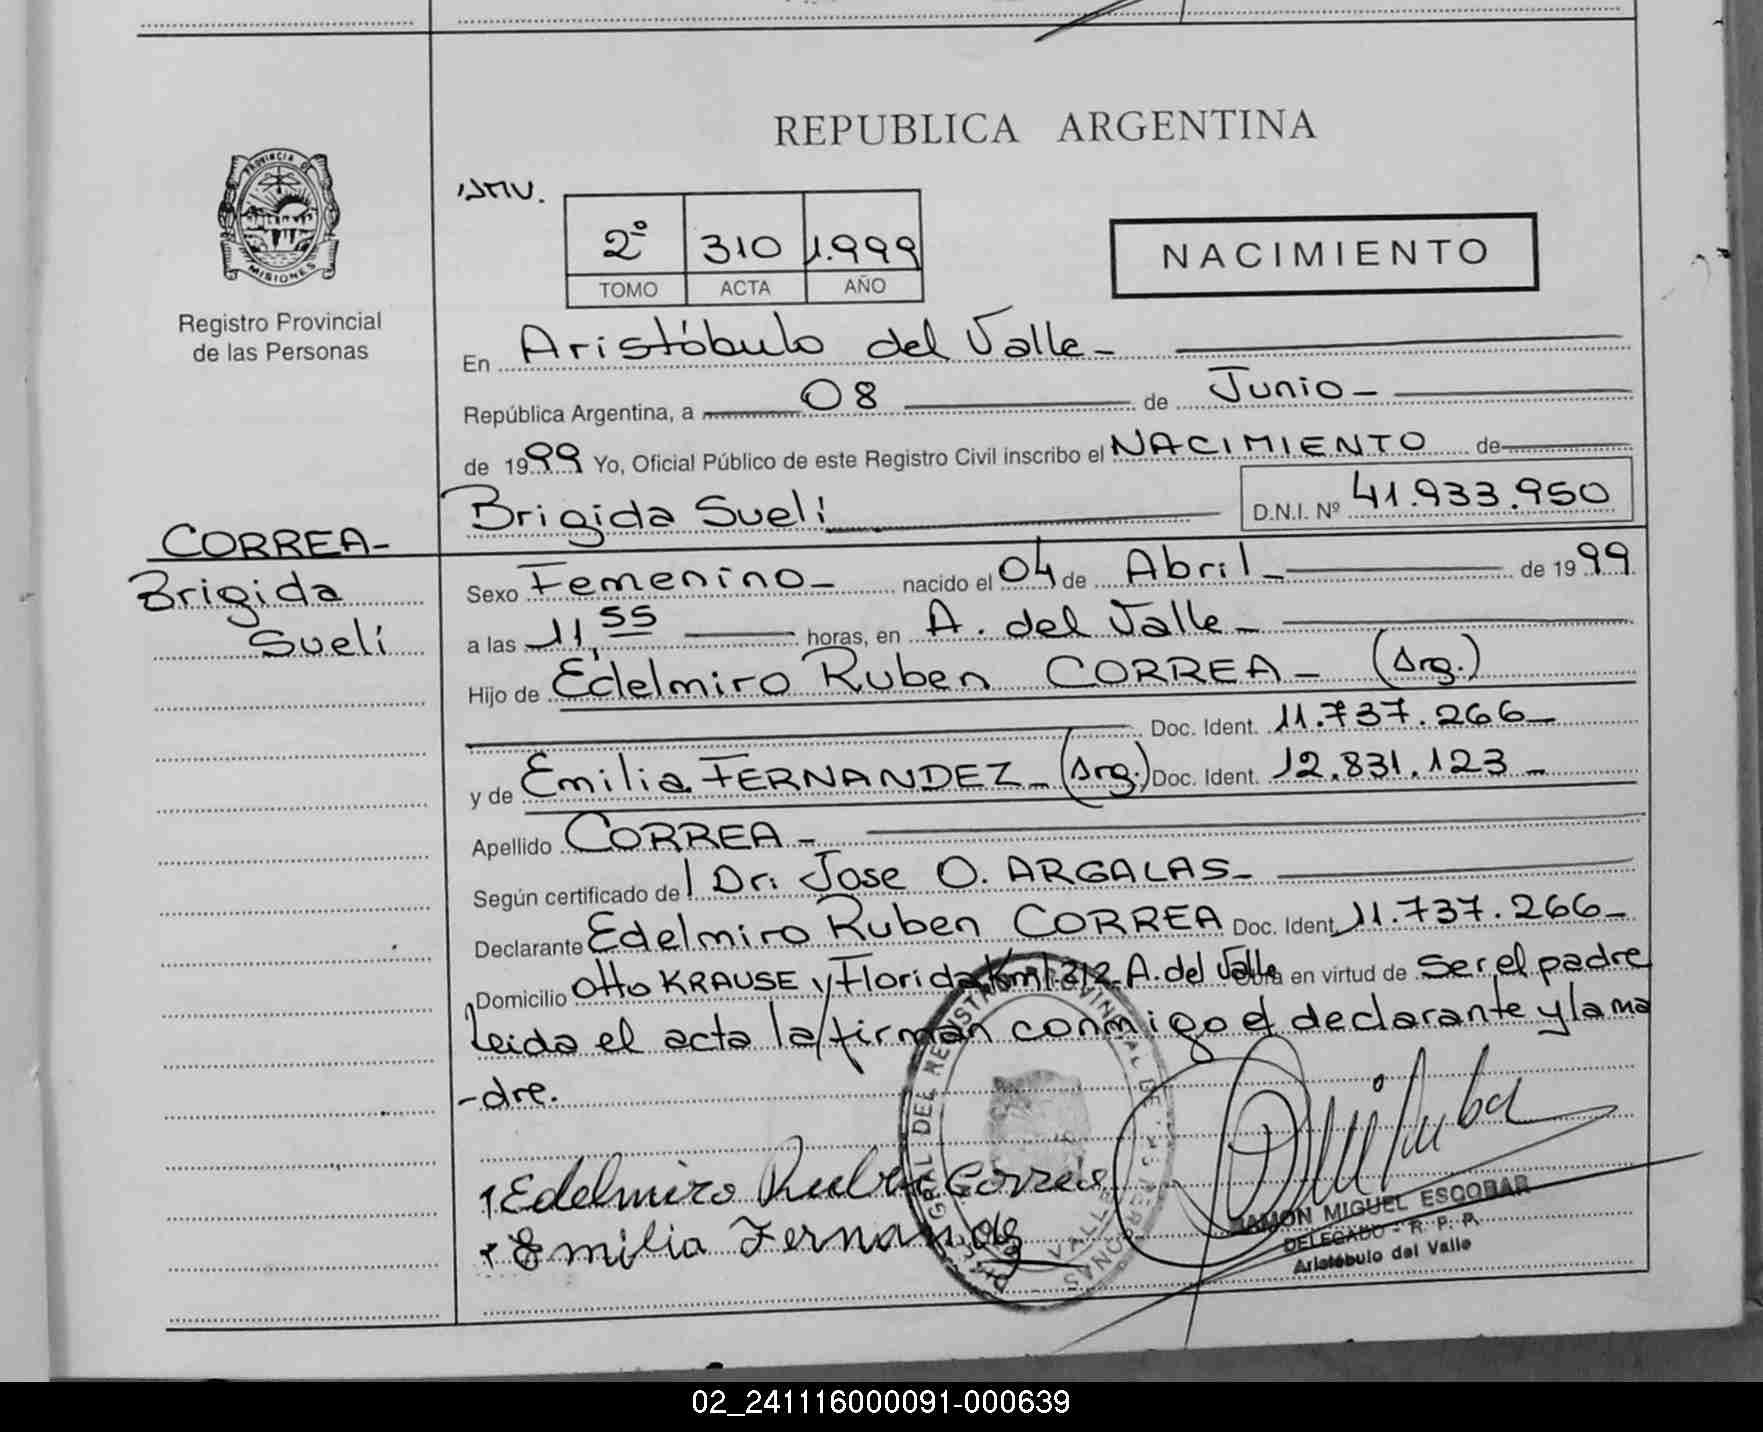 REPUBLICA ARGENTINA
PROVINCIA DE
MISIONES
Registro Provincial
de las Personas
2º 310 1.999
TOMO ACTA AÑO
NACIMIENTO
En Aristóbulo del Valle-
República Argentina, a 08 de Junio-
de 1999 Yo, Oficial Público de este Registro Civil inscribo el NACIMIENTO de
Brigida Sueli D.N.I. Nº 41.933.950
CORREA-
Brigida
Sueli
Sexo Femenino- nacido el 04 de Abril- de 1999
a las 11,55 horas, en A. del Valle-
Hijo de Edelmiro Ruben CORREA- (Arg.)
Doc. Ident. 11.737.266-
y de Emilia FERNANDEZ- (Arg.) Doc. Ident. 12.831.123-
Apellido CORREA-
Según certificado de Dr: Jose O. ARGALAS-
Declarante Edelmiro Ruben CORREA Doc. Ident. 11.737.266-
Domicilio Otto KRAUSE y Florida Km 1312 A. del Valle Obra en virtud de Ser el padre
Leida el acta la firman conmigo el declarante y la ma
-dre.
Edelmiro Ruben Correa
Emilia Fernandez
RAMON MIGUEL ESCOBAR
DELEGADO - R. P. P.
Aristóbulo del Valle
02_241116000091-000639